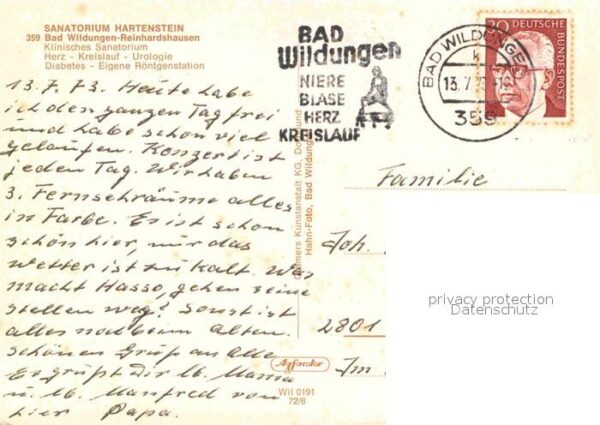 SANATORIUM HARTENSTEIN
359 Bad Wildungen-Reinhardshausen
Klinisches Sanatorium
Herz - Kreislauf - Urologie
Diabetes - Eigene Röntgenstation
13.7.73. Heute habe
ich den ganzen Tag frei
und habe schon viel
gelaufen. Konzert ist
jeden Tag. Wir haben
3. Fernsehräume alles
in Farbe. Es ist schon
schön hier, nur das
Wetter ist zu kalt. Was
macht Hasso, gehen seine
stellen weg? Sonst ist
alles noch beim Alten.
Schönen Gruß an Alle
Es grüßt Dir lb. Mama
u. lb. Manfred von
hier Papa.
BAD
Wildungen
NIERE
BLASE
HERZ
KREISLAUF
BAD WILDUNGEN
13.7.73
359
30 DEUTSCHE
BUNDESPOST
Kunstanstalt KG,
Hahn-Foto, Bad Wildungen
Familie
Joh.
2801
Im
privacy protection
Datenschutz
Agfacolor
Wil 0191
72/6